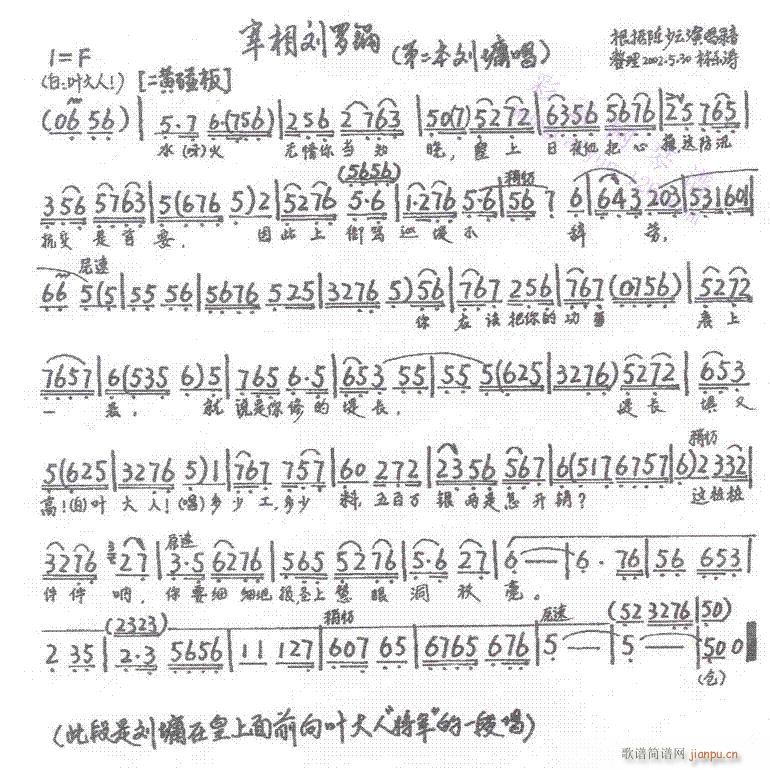 宰相刘罗锅(第二本刘墉唱)
1=F
根据陈少云演唱录音
(白:叶大人!) [二黄碰板]
整理2002.5.30
(06 56) | 5·7 6·(756) | 256 2763 | 50(7) 5272 | 6356 5676 | 25 765 |
水 火 无情你当知晓, 皇上日夜他把心 这防汛
(5656) 稍切
356 5763 | 5(676 5)2 | 5276 5·6 | 1·276 5·6 | 56 7 6 | 643 203 | 531601 |
抗灾是首要, 因此上 巡堤不辞劳,
原速
66 5(5 | 55 56 | 5676 525 | 3276 5)56 | 767 256 | 767 (0756) | 5272
你应该把你的功 表上
7657 | 6(535 6)5 | 765 6·5 | 653 55 | 55 5(625 | 3276) 5272 | 653
一表, 就说是你修的堤长, 堤长 又
稍切
5(625 | 3276 5)1 | 767 757 | 60 272 | 2356 567 | 6(517 6757 | 6)2 332 |
高!(白)叶大人!(唱)多少工,多少料,五百万银两是怎开销? 这桩桩
原速
3276 27 | 3·5 6276 | 565 5276 | 5·6 27 | 6 — | 6·76 | 56 653 |
件件 呐, 你要细细地报,圣上慧眼洞秋毫。
(2323) 稍切 原速 (52 3276 | 50)
2 35 | 2·3 5656 | 11 127 | 607 65 | 6765 676 | 5 — | 5 — | 500
(仓)
(此段是刘墉在皇上面前向叶大人"将军"的一段唱)
歌谱简谱网
jianpu.cn